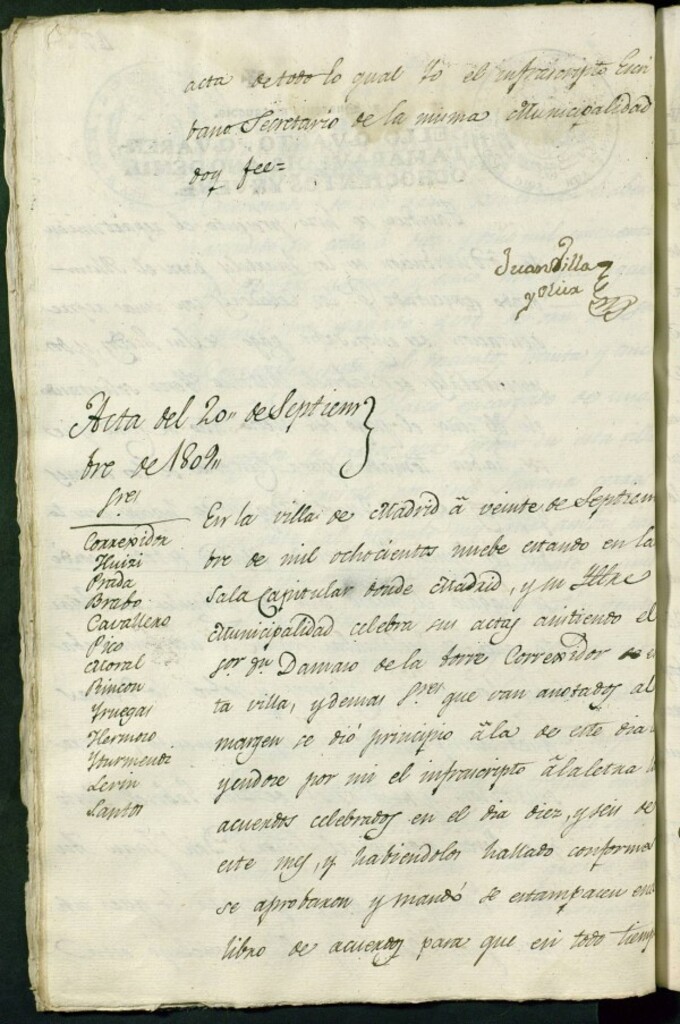 acta de todo lo qual Yo el infrascripto Escri
bano Secretario de la misma Municipalidad
doy fee=
Juan Villa
y Olier
Acta del 20,, de Septiem
bre de 1809,,
Sres
Correxidor
Huizi
Prada
Brabo
Cavallero
Pico
Moral
Rincon
Yruegas
Hermoso
Yturmendi
Levin
Santos
En la villa de Madrid â veinte de Septiem
bre de mil ochocientos nuebe estando en la
Sala Capitular donde Madrid, y su Illtre
Municipalidad celebra sus actas asistiendo el
Sor. Dn. Damaso de la torre Correxidor
ta villa, y demas Sres que van anotados al
margen se dió principio â la de este dia
yendose por mi el infrascripto â la letra l
acuerdos celebrados en el dia diez, y seis de
este mes, y habiendolos hallado conformes
se aprobaron y mandó se estampasen en
libro de acuerdos para que en todo tiemp